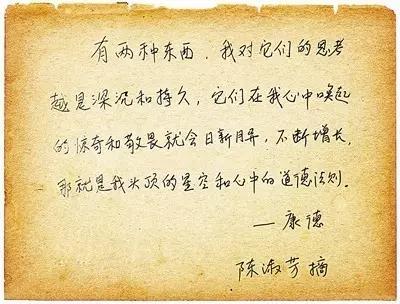 有两种东西，我对它们的思考
越是深沉和持久，它们在我心中唤起
的惊奇和敬畏就会日新月异，不断增长，
那就是我头顶的星空和心中的道德法则。
——康德
陈淑芳摘